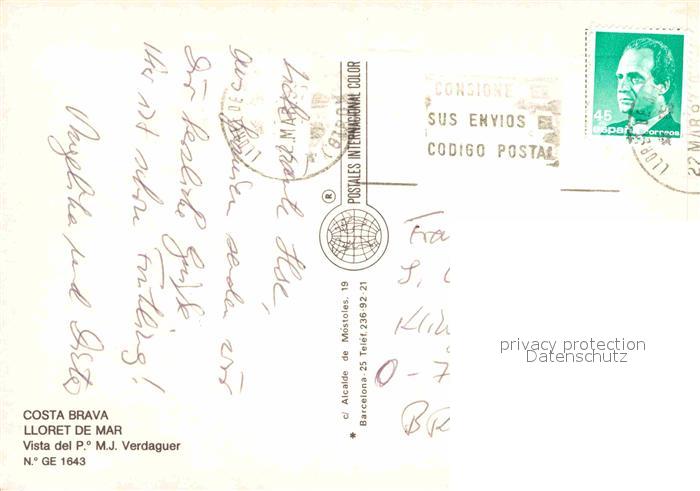 Liebe Tante Ilse,
aus Spanien senden wir
Dir herzliche Grüße
Hier ist schon Frühling!
Angelika und Dieter
COSTA BRAVA
LLORET DE MAR
Vista del P.º M.J. Verdaguer
N.º GE 1643
POSTALES INTERNACIONAL COLOR
®
* c/ Alcalde de Móstoles, 19
Barcelona-25 Teléf. 236-92-21
CONSIGNE
SUS ENVIOS
CODIGO POSTAL
45
españa correos
LLORET DE
MAR
22 MAR
Fra
S.
Klin
privacy protection
Datenschutz